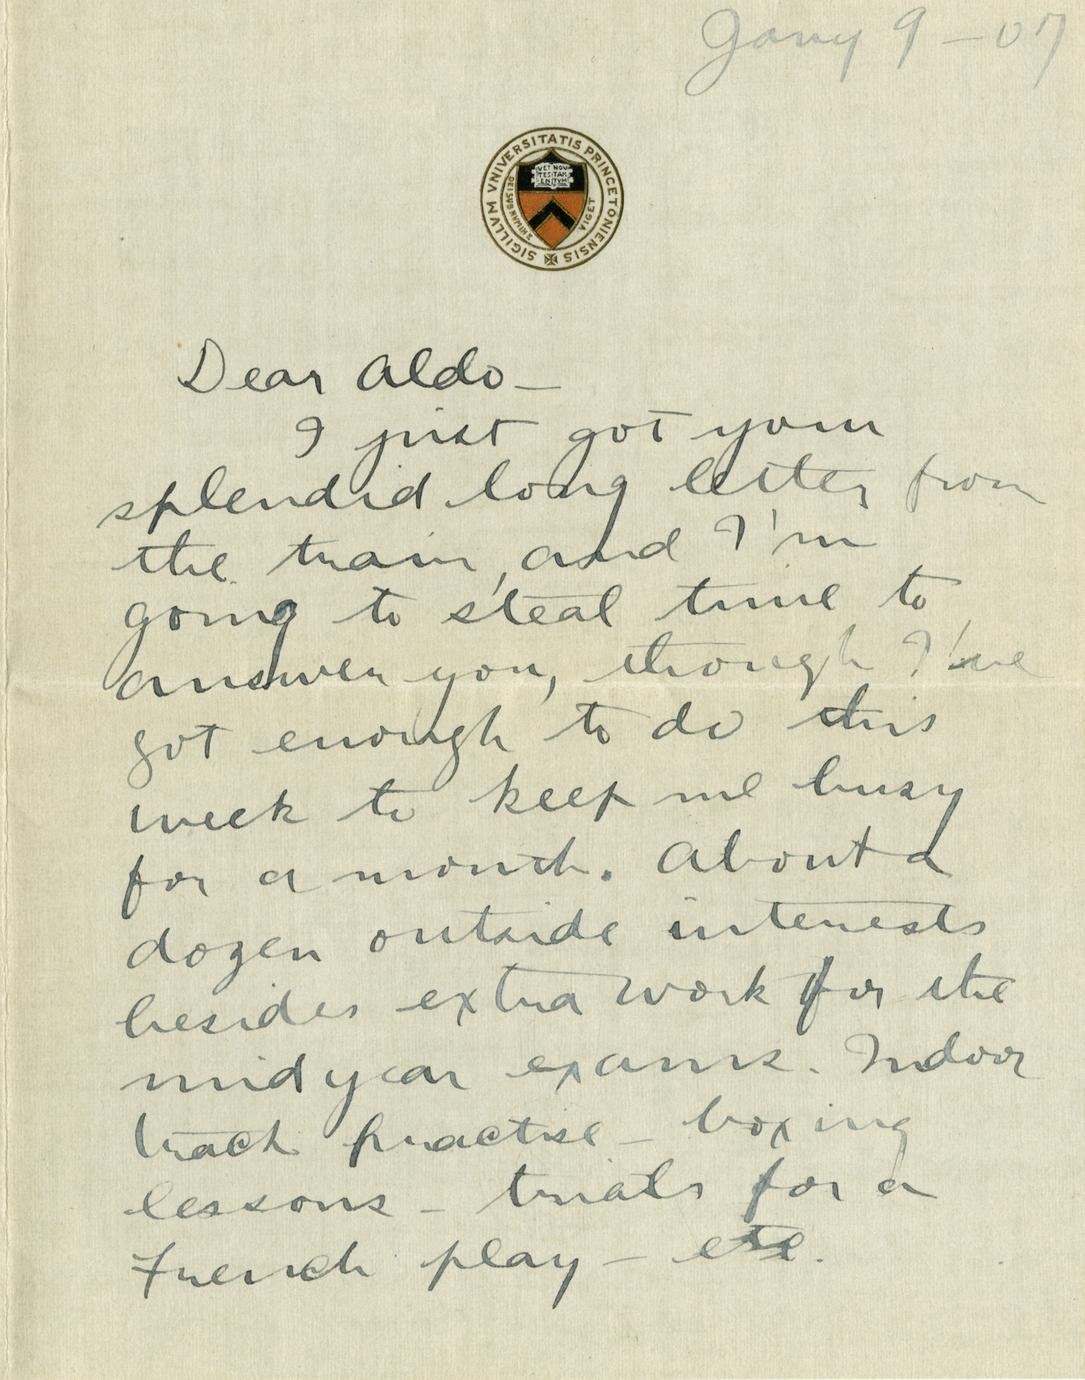 Jany 9 – 07
SIGILLVM VNIVERSITATIS PRINCETONIENSIS
VET NOV
TESTAM
ENTVM
DEI SVB NVMINE VIGET
Dear Aldo –
I just got your
splendid long letter from
the train, and I'm
going to steal time to
answer you, though I've
got enough to do this
week to keep me busy
for a month. About a
dozen outside interests
besides extra work for the
midyear exams. Indoor
track practise – boxing
lessons – trials for a
French play – etc.